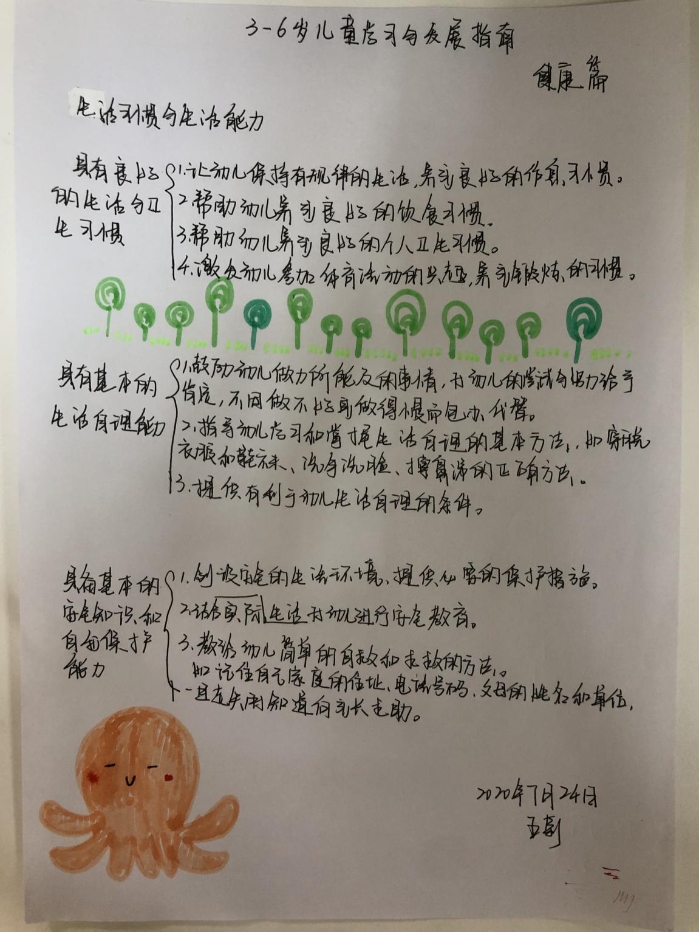 3-6岁儿童学习与发展指南
健康篇
生活习惯与生活能力
具有良好的生活与卫生习惯
1.让幼儿保持有规律的生活,养成良好的作息习惯。
2.帮助幼儿养成良好的饮食习惯.
3.帮助幼儿养成良好的个人卫生习惯。
4.激发幼儿参加体育活动的兴趣,养成锻炼的习惯。
具有基本的生活自理能力
1.鼓励幼儿做力所能及的事情,对幼儿的尝试与努力给予
肯定,不因做不好或做得慢而包办代替。
2.指导幼儿学习和掌握生活自理的基本方法,如穿脱
衣服和鞋袜、洗手洗脸、擦鼻涕的正确方法。
3.提供有利于幼儿生活自理的条件。
具备基本的安全知识和自我保护能力
1.创设安全的生活环境,提供必要的保护措施。
2.结合实际生活对幼儿进行安全教育。
3.教给幼儿简单的自救和求救的方法。
如记住自己家庭的住址、电话号码、父母的姓名和单位,
一旦走失时知道向成人求助。
2020年7月24日